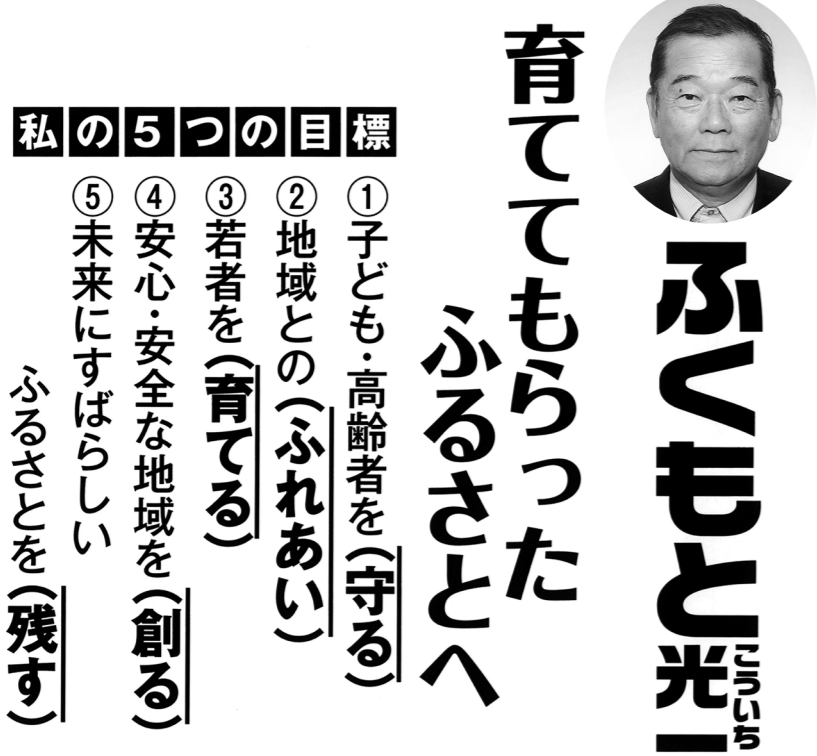 ふくもと光一
こういち
育ててもらった
ふるさとへ
私の5つの目標
①子ども・高齢者を(守る)
②地域との(ふれあい)
③若者を(育てる)
④安心・安全な地域を(創る)
⑤未来にすばらしい
ふるさとを(残す)